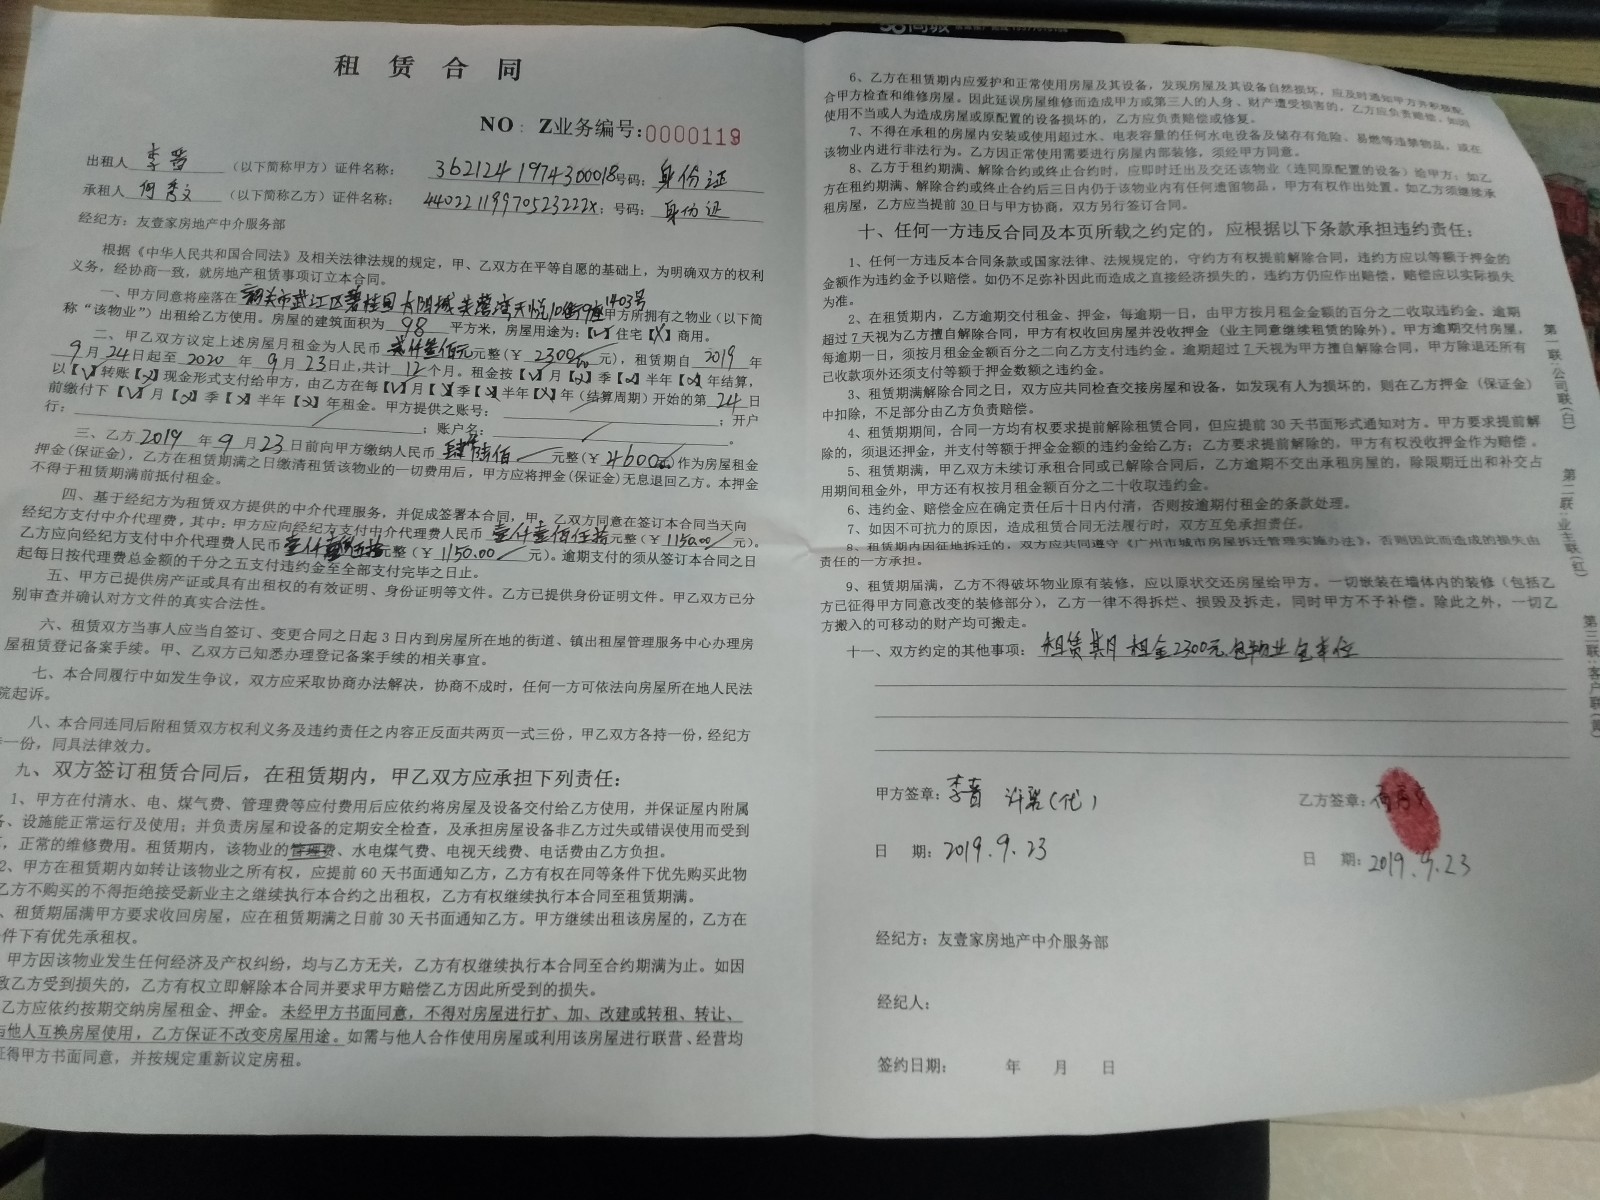 租 赁 合 同
NO: Z业务编号:0000119
出租人 李晋 (以下简称甲方) 证件名称: 号码: 身份证
承租人 何秀文 (以下简称乙方) 证件名称: 44022119970523222x; 号码: 身份证
经纪方: 友壹家房地产中介服务部
根据《中华人民共和国合同法》及相关法律法规的规定，甲、乙双方在平等自愿的基础上，为明确双方的权利
义务，经协商一致，就房地产租赁事项订立本合同。
一、甲方同意将座落在 韶关市武江区碧桂园太阳城 天悦10街9座1403号 甲方所拥有之物业 (以下简
称“该物业”) 出租给乙方使用。房屋的建筑面积为 98 平方米，房屋用途为:【√】住宅【X】商用。
二、甲乙双方议定上述房屋月租金为人民币 贰仟叁佰元 元整(￥ 2300.00 元)，租赁期自 2019 年
9 月 24 日起至 2020 年 9 月 23 日止,共计 12 个月。租金按【√】月【X】季【X】半年【X】年结算，
以【√】转账【X】现金形式支付给甲方，由乙方在每【√】月【X】季【X】半年【X】年 (结算周期) 开始的第 24 日
前缴付下【√】月【X】季【X】半年【X】年租金。甲方提供之账号: ; 开户
行: ; 账户名: 。
三、乙方 2019 年 9 月 23 日前向甲方缴纳人民币 肆仟陆佰 元整(￥ 4600.00 )作为房屋租金
押金(保证金)，乙方在租赁期满之日缴清租赁该物业的一切费用后，甲方应将押金(保证金)无息退回乙方。本押金
不得于租赁期满前抵付租金。
四、基于经纪方为租赁双方提供的中介代理服务，并促成签署本合同，甲、乙双方同意在签订本合同当天向
经纪方支付中介代理费，其中: 甲方应向经纪方支付中介代理费人民币 壹仟壹佰伍拾 元整(￥ 1150.00 元)。
乙方应向经纪方支付中介代理费人民币 壹仟壹佰伍拾 元整 (￥ 1150.00 元)。逾期支付的须从签订本合同之日
起每日按代理费总金额的千分之五支付违约金至全部支付完毕之日止。
五、甲方已提供房产证或具有出租权的有效证明、身份证明等文件。乙方已提供身份证明文件。甲乙双方已分
别审查并确认对方文件的真实合法性。
六、租赁双方当事人应当自签订、变更合同之日起 3 日内到房屋所在地的街道、镇出租屋管理服务中心办理房
屋租赁登记备案手续。甲、乙双方已知悉办理登记备案手续的相关事宜。
七、本合同履行中如发生争议，双方应采取协商办法解决，协商不成时，任何一方可依法向房屋所在地人民法
院起诉。
八、本合同连同后附租赁双方权利义务及违约责任之内容正反面共两页一式三份，甲乙双方各持一份，经纪方
一份，同具法律效力。
九、双方签订租赁合同后，在租赁期内，甲乙双方应承担下列责任:
1、甲方在付清水、电、煤气费、管理费等应付费用后应依约将房屋及设备交付给乙方使用，并保证屋内附属
、设施能正常运行及使用; 并负责房屋和设备的定期安全检查，及承担房屋设备非乙方过失或错误使用而受到
，正常的维修费用。租赁期内，该物业的管理费、水电煤气费、电视天线费、电话费由乙方负担。
2、甲方在租赁期内如转让该物业之所有权，应提前 60 天书面通知乙方，乙方有权在同等条件下优先购买此物
乙方不购买的不得拒绝接受新业主之继续执行本合约之出租权，乙方有权继续执行本合同至租赁期满。
、租赁期届满甲方要求收回房屋，应在租赁期满之日前 30 天书面通知乙方。甲方继续出租该房屋的，乙方在
件下有优先承租权。
甲方因该物业发生任何经济及产权纠纷，均与乙方无关，乙方有权继续执行本合同至合约期满为止。如因
致乙方受到损失的，乙方有权立即解除本合同并要求甲方赔偿乙方因此所受到的损失。
乙方应依约按期交纳房屋租金、押金。未经甲方书面同意，不得对房屋进行扩、加、改建或转租、转让、
与他人互换房屋使用，乙方保证不改变房屋用途。如需与他人合作使用房屋或利用该房屋进行联营、经营均
征得甲方书面同意，并按规定重新议定房租。
6、乙方在租赁期内应爱护和正常使用房屋及其设备，发现房屋及其设备自然损坏，应及时通知甲方并积极配
合甲方检查和维修房屋。因此延误房屋维修而造成甲方或第三人的人身、财产遭受损害的，乙方应负责赔偿。如因
使用不当或人为造成房屋或原配置的设备损坏的，乙方应负责赔偿或修复。
7、不得在承租的房屋内安装或使用超过水、电表容量的任何水电设备及储存有危险、易燃等违禁物品，或在
该物业内进行非法行为。乙方因正常使用需要进行房屋内部装修，须经甲方同意。
8、乙方于租约期满、解除合约或终止合约时，应即时迁出及交还该物业 (连同原配置的设备) 给甲方; 如乙
方在租约期满、解除合约或终止合约后三日内仍于该物业内有任何遗留物品，甲方有权作出处置。如乙方须继续承
租房屋，乙方应当提前 30 日与甲方协商，双方另行签订合同。
十、任何一方违反合同及本页所载之约定的，应根据以下条款承担违约责任:
1、任何一方违反本合同条款或国家法律、法规规定的，守约方有权提前解除合同，违约方应以等额于押金的
金额作为违约金予以赔偿。如仍不足弥补因此而造成之直接经济损失的，违约方仍应作出赔偿，赔偿应以实际损失
为准。
2、在租赁期内，乙方逾期交付租金、押金，每逾期一日，由甲方按月租金金额的百分之二收取违约金。逾期
超过 7 天视为乙方擅自解除合同，甲方有权收回房屋并没收押金 (业主同意继续租赁的除外)。甲方逾期交付房屋，
每逾期一日，须按月租金金额百分之二向乙方支付违约金。逾期超过 7 天视为甲方擅自解除合同，甲方除退还所有
已收款项外还须支付等额于押金数额之违约金。
3、租赁期满解除合同之日，双方应共同检查交接房屋和设备，如发现有人为损坏的，则在乙方押金 (保证金)
中扣除，不足部分由乙方负责赔偿。
4、租赁期期间，合同一方均有权要求提前解除租赁合同，但应提前 30 天书面形式通知对方。甲方要求提前解
除的，须退还押金，并支付等额于押金金额的违约金给乙方; 乙方要求提前解除的，甲方有权没收押金作为赔偿。
5、租赁期满，甲乙双方未续订承租合同或已解除合同后，乙方逾期不交出承租房屋的，除限期迁出和补交占
用期间租金外，甲方还有权按月租金额百分之二十收取违约金。
6、违约金、赔偿金应在确定责任后十日内付清，否则按逾期付租金的条款处理。
7、如因不可抗力的原因，造成租赁合同无法履行时，双方互免承担责任。
8、租赁期内因征地拆迁的，双方应共同遵守《广州市城市房屋拆迁管理实施办法》，否则因此而造成的损失由
责任的一方承担。
9、租赁期届满，乙方不得破坏物业原有装修，应以原状交还房屋给甲方。一切嵌装在墙体内的装修 (包括乙
方已征得甲方同意改变的装修部分)，乙方一律不得拆烂、损毁及拆走，同时甲方不予补偿。除此之外，一切乙
方搬入的可移动的财产均可搬走。
十一、双方约定的其他事项: 租赁其月租金2300元.包物业包车位
甲方签章: 李晋 许 (代)
乙方签章: 何秀文
日 期: 2019.9.23
日 期: 2019.9.23
经纪方: 友壹家房地产中介服务部
经纪人:
签约日期: 年 月 日
第一联:公司联(白)
第二联:业主联(红)
第三联:客户联(黄)